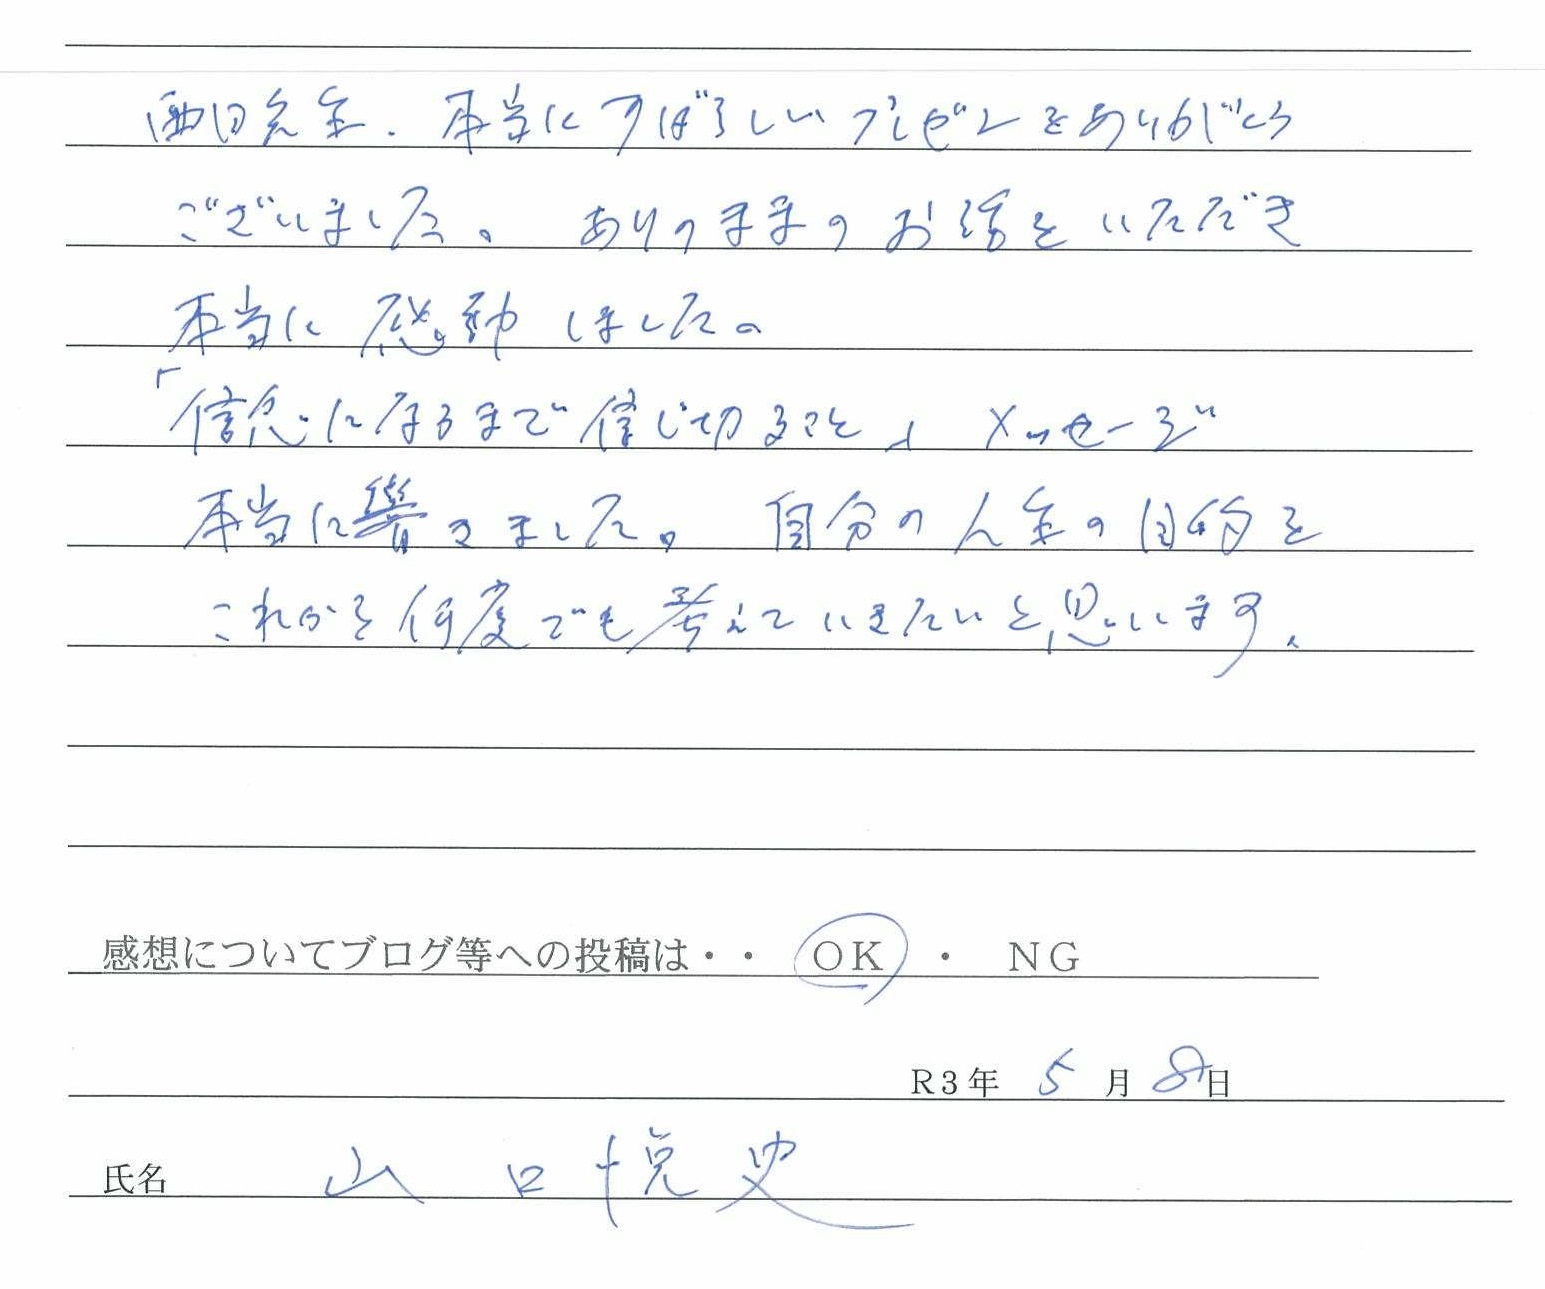 西田先生、本当にすばらしいプレゼンをありがとう
ございました。ありのままのお話をいただき
本当に感動しました。
「信念になるまで信じ切ること」メッセージ
本当に響きました。自分の人生の目的を
これから何度でも考えていきたいと思います、
感想についてブログ等への投稿は・・ OK ・ NG
R3年 5月8日
氏名 山口悦史